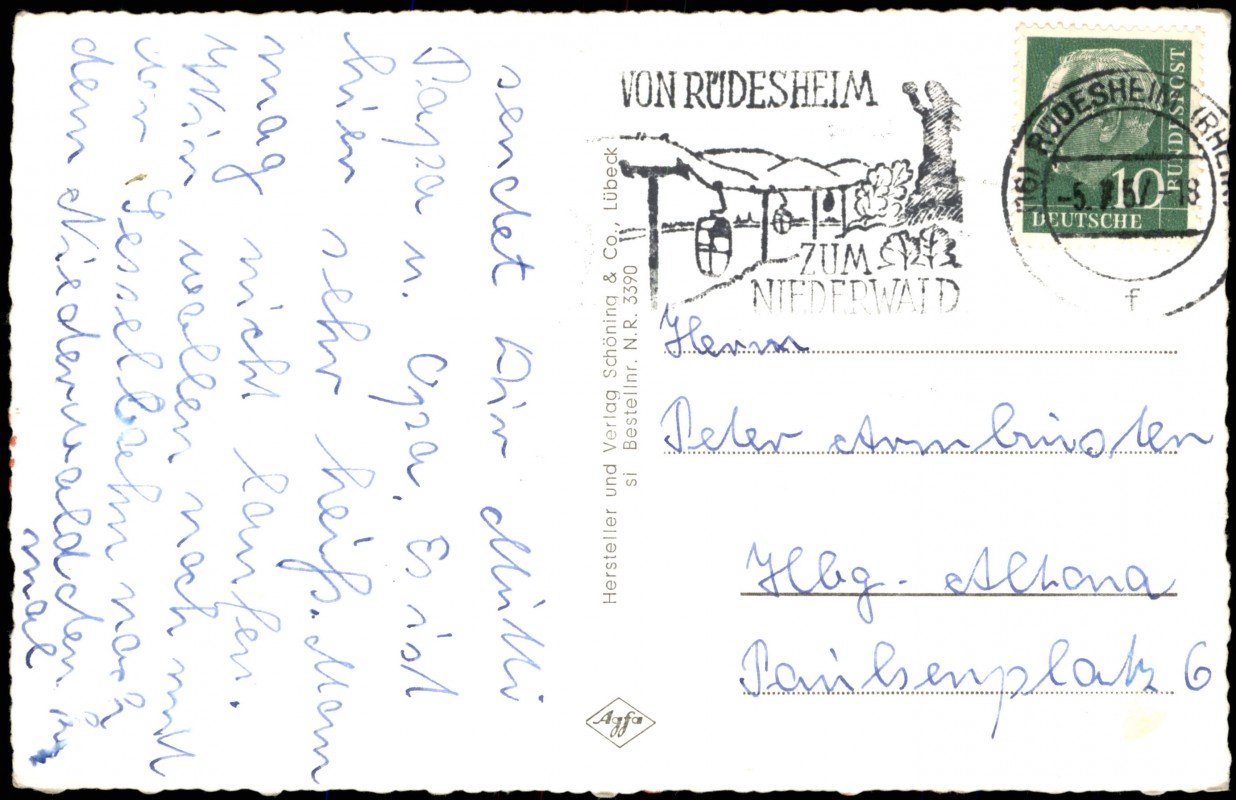 sendet Dir Mutti
Papa u. Opa. Es ist
hier sehr heiß. Man
mag nicht laufen.
Wir wollen noch mit
der Sesselbahn nach
dem Niederwalddenk
mal
Hersteller und Verlag Schöning & Co., Lübeck
si Bestellnr. N.R. 3390
Agfa
VON RÜDESHEIM
ZUM
NIEDERWALD
RÜDESHEIM (RHEIN)
-5. 57-18
f
10
DEUTSCHE
BUNDESPOST
Herrn
Peter Armbrüster
Hbg - Altona
Paulsenplatz 6